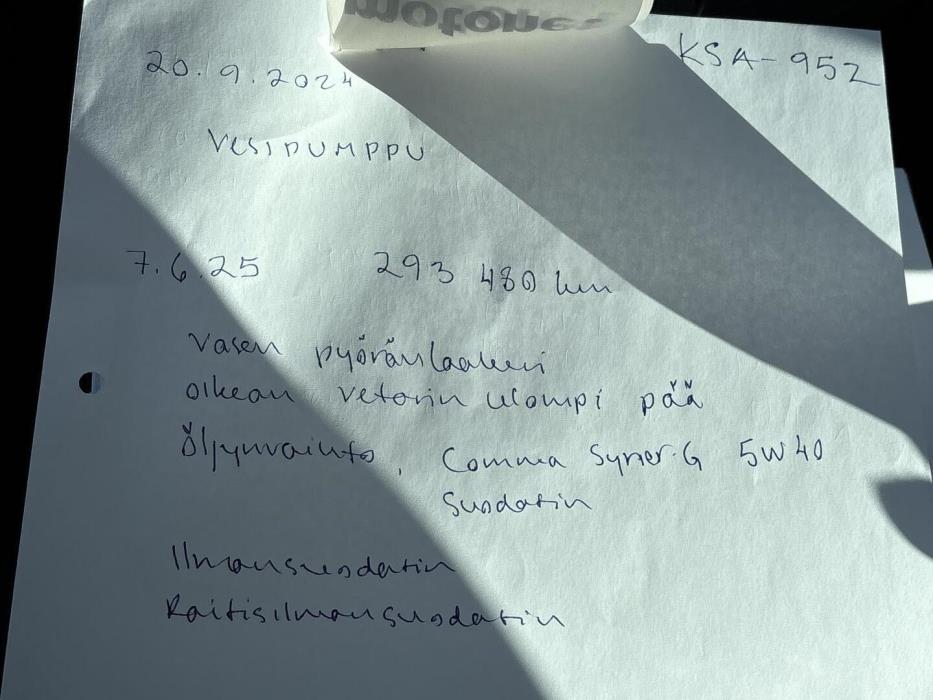 motonet
KSA-952
20.9.2024
VESIPUMPPU
7.6.25 293 480 km
Vasen pyöränlaakeri
oikean vetorin ulompi pää
Öljynvaihto, Comma Syner-G 5W40
Suodatin
Ilmansuodatin
Raitisilmansuodatin